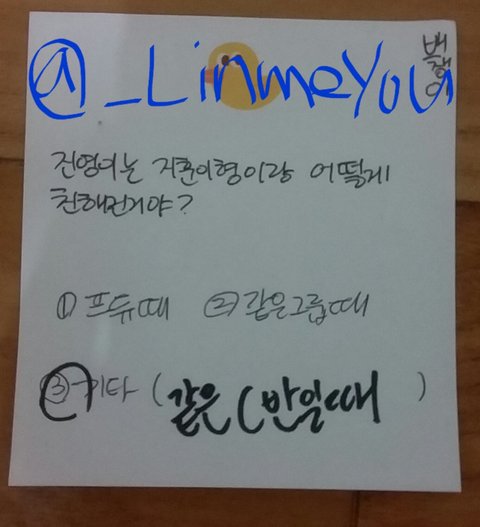 @_LinmeYou
배쟁이
진영이는 지훈이형이랑 어떻게
친해진거야?
① 프듀때 ② 같은그룹때
③ 기타 (같은 (반일때 )